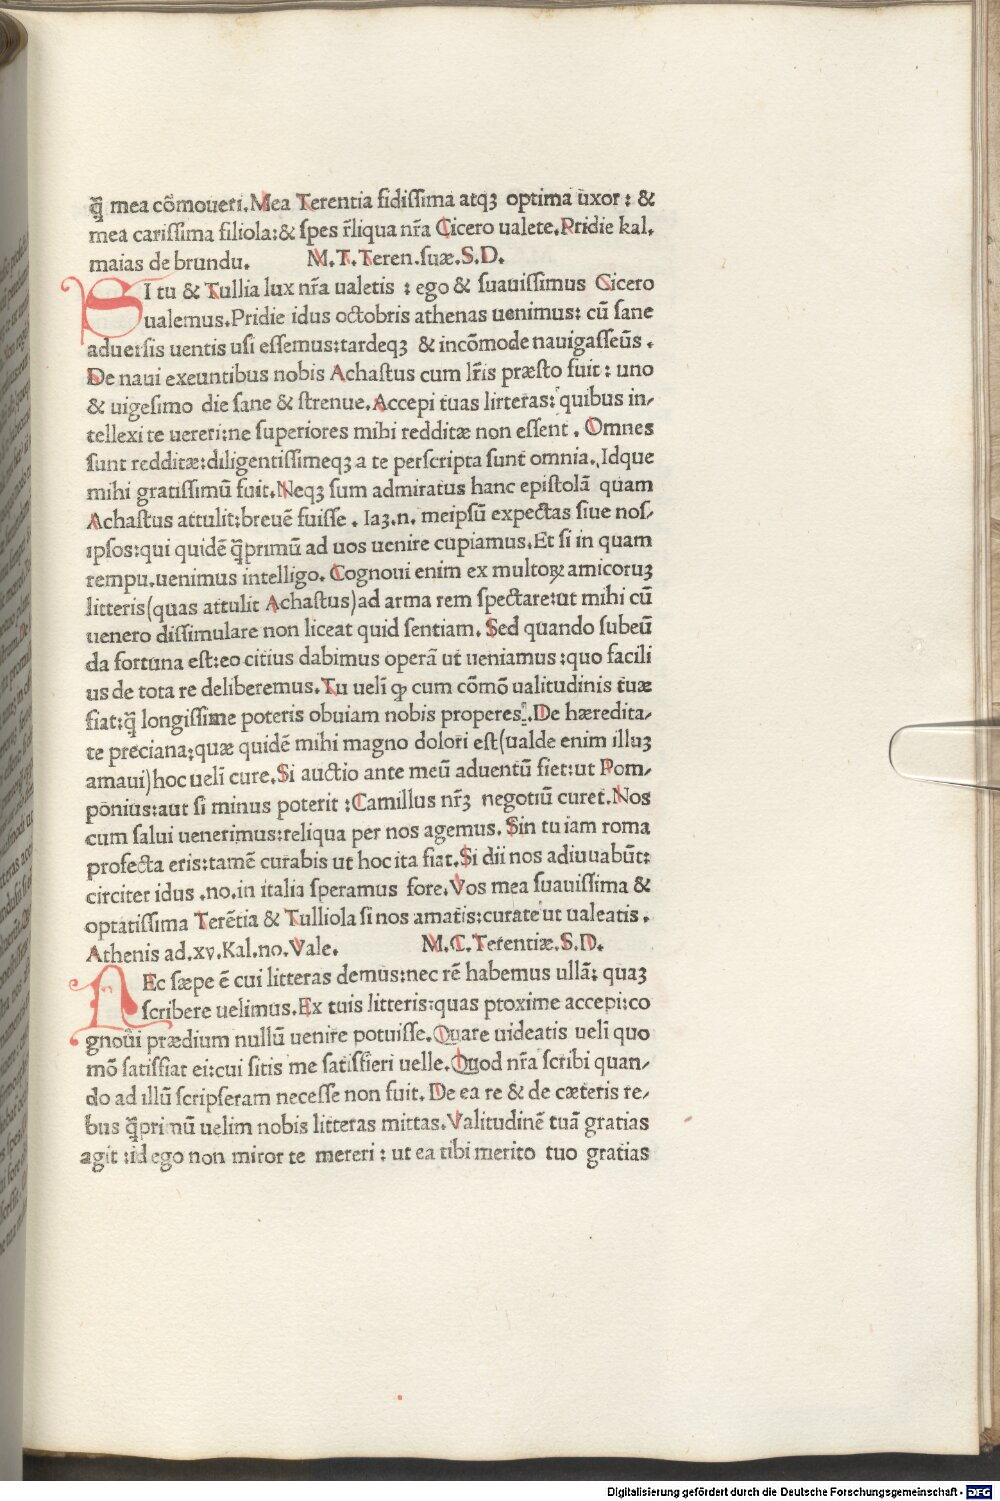 q̄ mea cōmoueri. Mea Terentia fidissima atqꝫ optima uxor : &
mea carissima filiola: & spes r̄liqua nr̄a Cicero ualete. Pridie kal.
maias de brundu. M. T. Teren. suæ. S. D.
SI tu & Tullia lux nr̄a ualetis : ego & suauissimus Cicero
ualemus. Pridie idus octobris athenas uenimus: cū sane
aduersis uentis usi essemus: tardeqꝫ & incōmode nauigasseūs .
De naui exeuntibus nobis Achastus cum lr̄is præsto fuit : uno
& uigesimo die sane & strenue. Accepi tuas lirteras: quibus in/
tellexi te uereri: ne superiores mihi redditæ non essent . Omnes
sunt redditæ: diligentissimeqꝫ a te perscripta sunt omnia. Idque
mihi gratissimū fuit. Neqꝫ sum admiratus hanc epistolā quam
Achastus attulit: breuē fuisse . Iaꝫ .n. meipsū expectas siue nos/
ipsos: qui quidē q̄primū ad uos uenire cupiamus. Et si in quam
rempu. uenimus intelligo. Cognoui enim ex multoꝝ amicoruꝫ
litteris (quas attulit Achastus) ad arma rem spectare: ut mihi cū
uenero dissimulare non liceat quid sentiam. Sed quando subeū
da fortuna est: eo citius dabimus operā ut ueniamus : quo facili
us de tota re deliberemus. Tu ueli ꝙ cum cōmō ualitudinis tuæ
fiat: q̄ longissime poteris obuiam nobis properes. De hæredita/
te preciana: quæ quidē mihi magno dolori est (ualde enim illuꝫ
amaui) hoc ueli cure. Si auctio ante meū aduentū fiet: ut Pom/
ponius: aut si minus poterit : Camillus nr̄ꝫ negotiū curet. Nos
cum salui uenerimus: reliqua per nos agemus. Sin tu iam roma
profecta eris: tamē curabis ut hoc ita fiat. Si dii nos adiuuabūt:
circiter idus .no. in italia speramus fore. Vos mea suauissima &
optatissima Terētia & Tulliola si nos amatis: curate ut ualeatis .
Athenis ad .xv. Kal. no. Vale. M. C. Terentiæ. S. D.
NEc sæpe ē cui litteras demus: nec rē habemus ullā: quaꝫ
scribere uelimus. Ex tuis litteris: quas proxime accepi: co
gnoui prædium nullū uenire potuisse. Quare uideatis ueli quo
mō satisfiat ei: cui sitis me satisfieri uelle. Quod nr̄a scribi quan/
do ad illū scripseram necesse non fuit. De ea re & de cæteris re/
bus q̄primū uelim nobis litteras mittas. Valitudinē tuā gratias
agit : id ego non miror te mereri : ut ea tibi merito tuo gratias
Digitalisierung gefördert durch die Deutsche Forschungsgemeinschaft - DFG